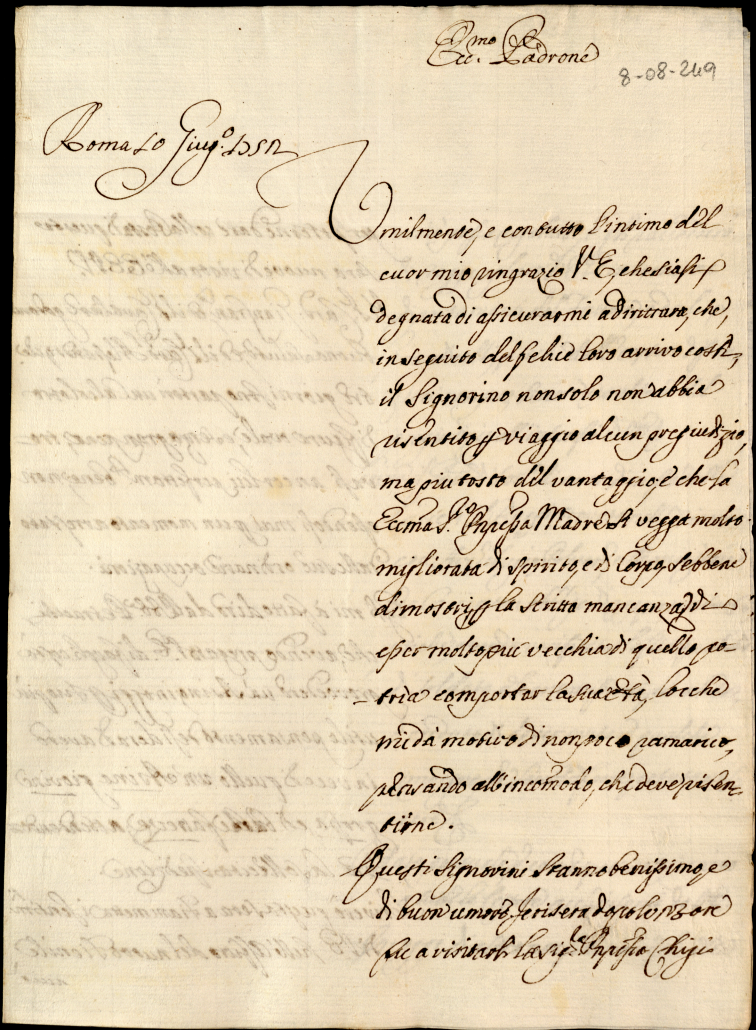 Ecc.mo Padrone
8-08-249
Roma 10 Giug.o
Umilmente, e con tutto l'intimo del
cuor mio ringrazio V. E., che siasi
degnata di assicurarmi a dirittura, che,
in seguito del felice loro arrivo costì,
il Signorino non solo non abbia
risentito p viaggio alcun pregiudizio,
ma piutosto del vantaggio, e che la
Eccma S.a Pnpessa Madre si vegga molto
migliorata di spirito, e di Corpo, sebbene
dimostri p la stessa mancanza di
esser molto più vecchia di quello po-
tria comportar la sua età, locche
mi dà motivo di non poco ramarico,
pensando all'incomodo, che deve risen-
tirne.
Questi Signorini stanno benissimo, e
di buon umore. Jeri sera dopo le ore
fu a visitarli la Sig.ra Pnpessa Chigi